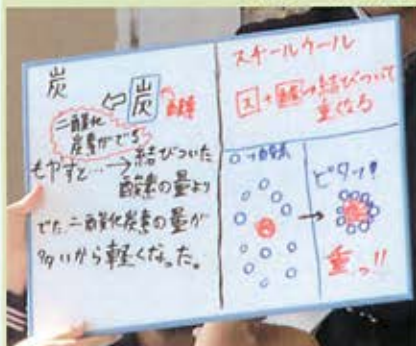 炭
炭
酸素
二酸化
炭素ができる
もやすと…→結びついた
酸素の量より
でた二酸化炭素の量が
多いから軽くなった。
スチールウール
ス+酸素→結びついて
重くなる
○→酸素
ピタッ!
重っ!!